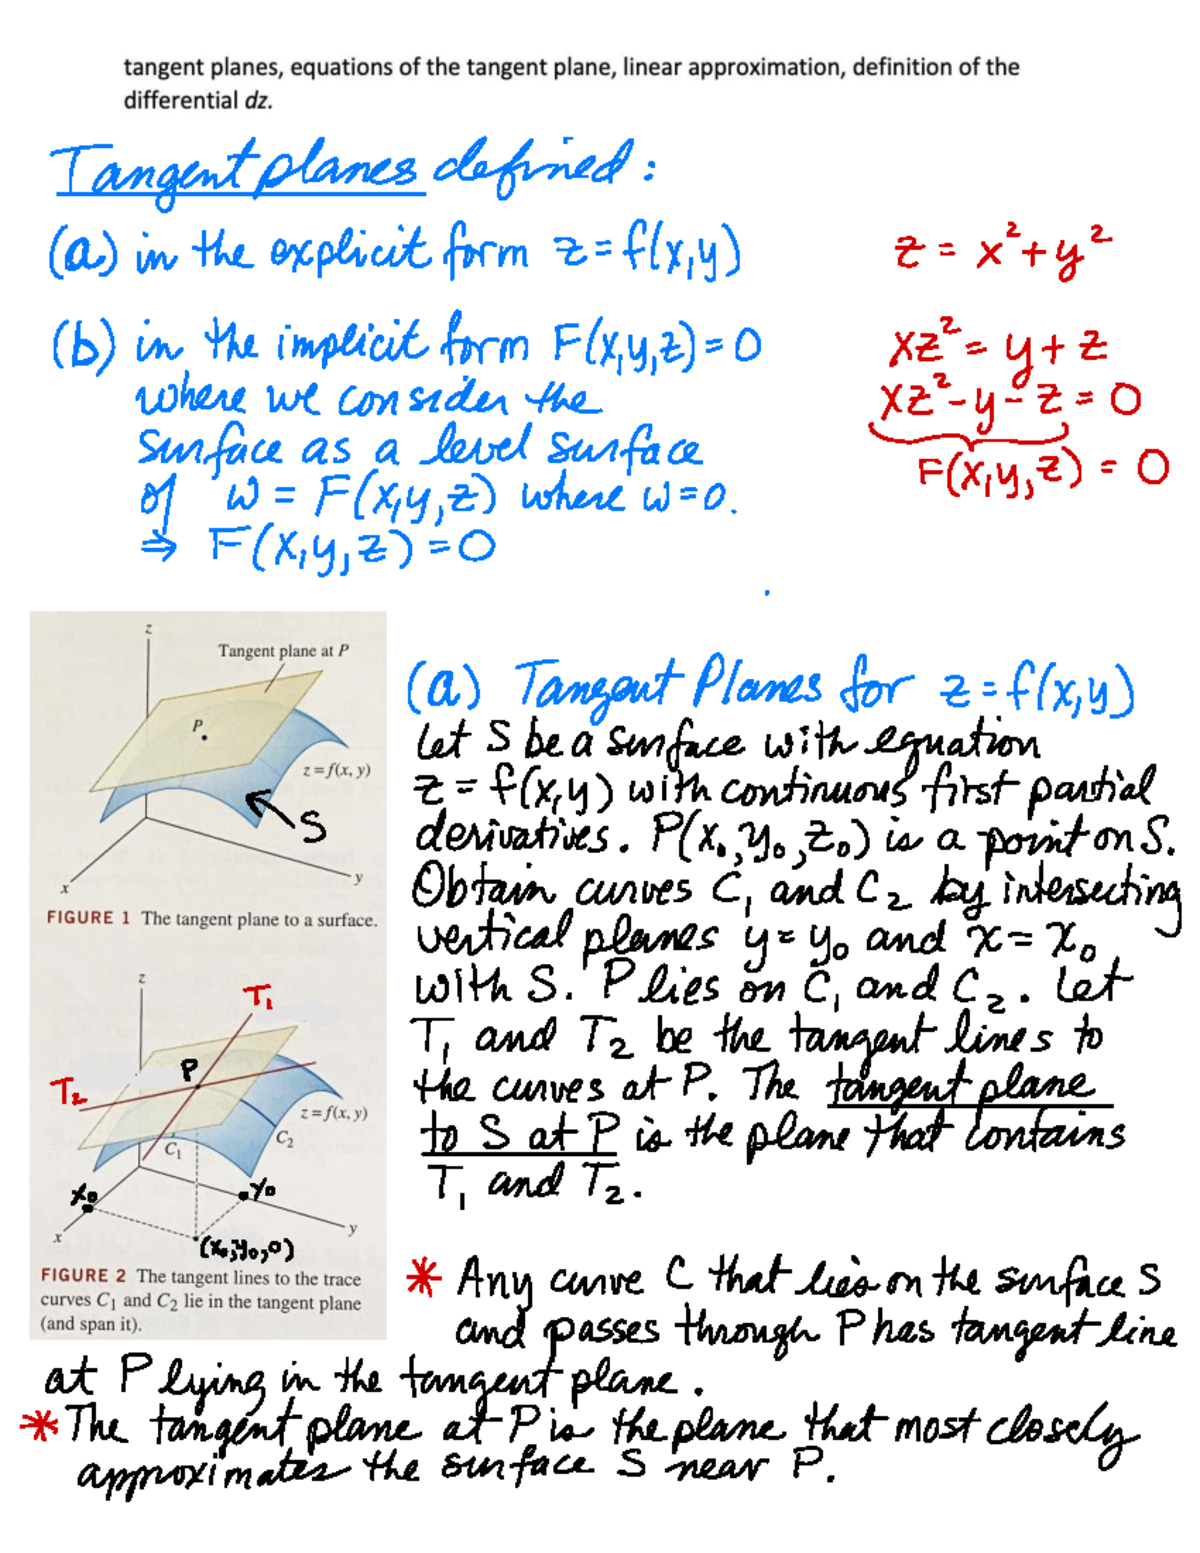 tangent planes, equations of the tangent plane, linear approximation, definition of the
differential dz.
Tangent planes defined:
(a) in the explicit form z=f(x,y)
z = x²+y²
(b) in the implicit form F(x,y,z)=0
where we consider the
surface as a level surface
of w = F(x,y,z) where w=0.
⇒ F(x,y,z)=0
xz²= y+z
xz²-y-z=0
F(x,y,z) = 0
z
Tangent plane at P
P
z=f(x, y)
S
y
x
FIGURE 1 The tangent plane to a surface.
(a) Tangent Planes for z=f(x,y)
Let S be a surface with equation
z = f(x,y) with continuous first partial
derivatives. P(x₀,y₀,z₀) is a point on S.
Obtain curves C₁ and C₂ by intersecting
vertical planes y=y₀ and x=x₀
with S. P lies on C₁ and C₂. Let
T₁ and T₂ be the tangent lines to
the curves at P. The tangent plane
to S at P is the plane that contains
T₁ and T₂.
z
T₁
P
T₂
z=f(x, y)
C₂
C₁
x₀
y₀
y
x
(x₀,y₀,0)
FIGURE 2 The tangent lines to the trace
curves C₁ and C₂ lie in the tangent plane
(and span it).
* Any curve C that lies on the surface S
and passes through P has tangent line
at P lying in the tangent plane.
* The tangent plane at P is the plane that most closely
approximates the surface S near P.